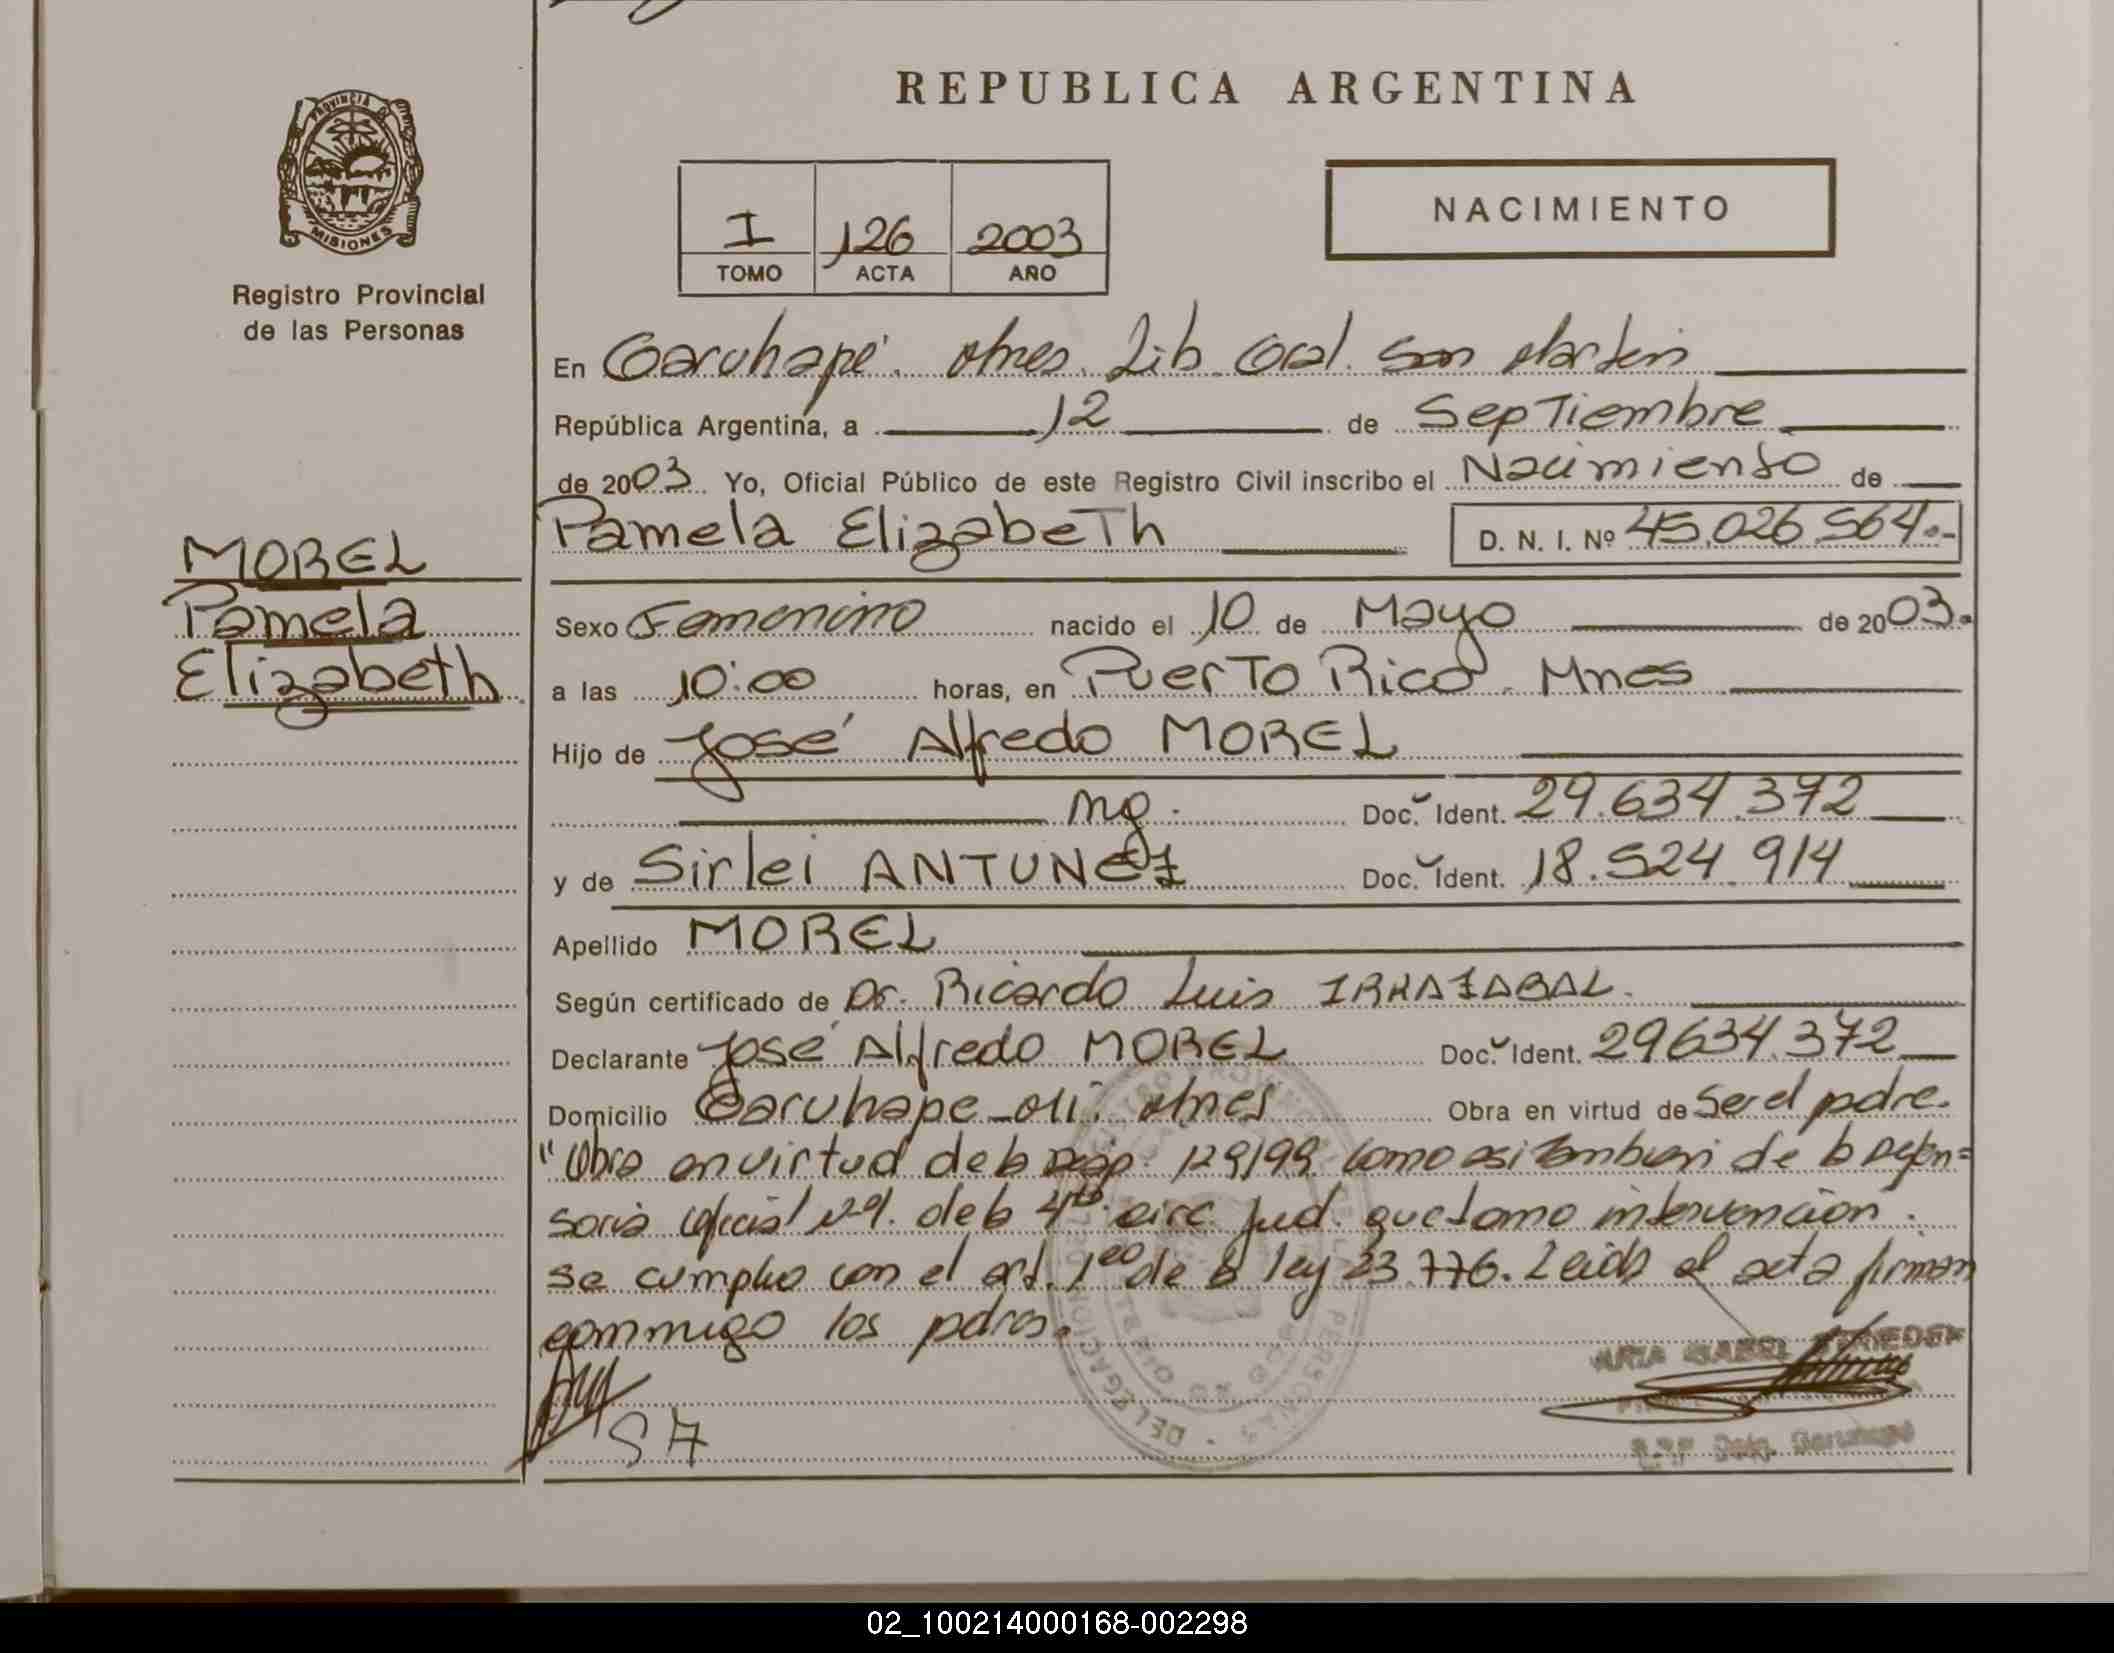 REPUBLICA ARGENTINA
PROVINCIA DE
MISIONES
Registro Provincial
de las Personas
I 126 2003
TOMO ACTA AÑO
NACIMIENTO
En Garuhapé. Mnes. Lib. Gral. San Martin
República Argentina, a 12 de Septiembre
de 2003 Yo, Oficial Público de este Registro Civil inscribo el Nacimiento de
Pamela Elizabeth D. N. I. Nº 45.026.564.-
MOREL
Pamela
Elizabeth
Sexo Femenino nacido el 10 de Mayo de 2003.
a las 10:00 horas, en Puerto Rico. Mnes
Hijo de José Alfredo MOREL
Doc. Ident. 29.634.372
y de Sirlei ANTUNEZ Doc. Ident. 18.524.914
Apellido MOREL
Según certificado de Dr. Ricardo Luis IRRAZABAL.
Declarante José Alfredo MOREL Doc. Ident. 29634.372
Domicilio Garuhape-Mi. Mnes Obra en virtud de Ser el padre.
"Obra en virtud de la Disp. 129/99 como asi tambien de la Defen=
soria oficial Nº1. de la 4ta. circ. Jud. que tomo intervencion.
se cumplio con el art. 1ero de la ley 23.776. Leida el acta firman
conmigo los padres.
SA
02_100214000168-002298